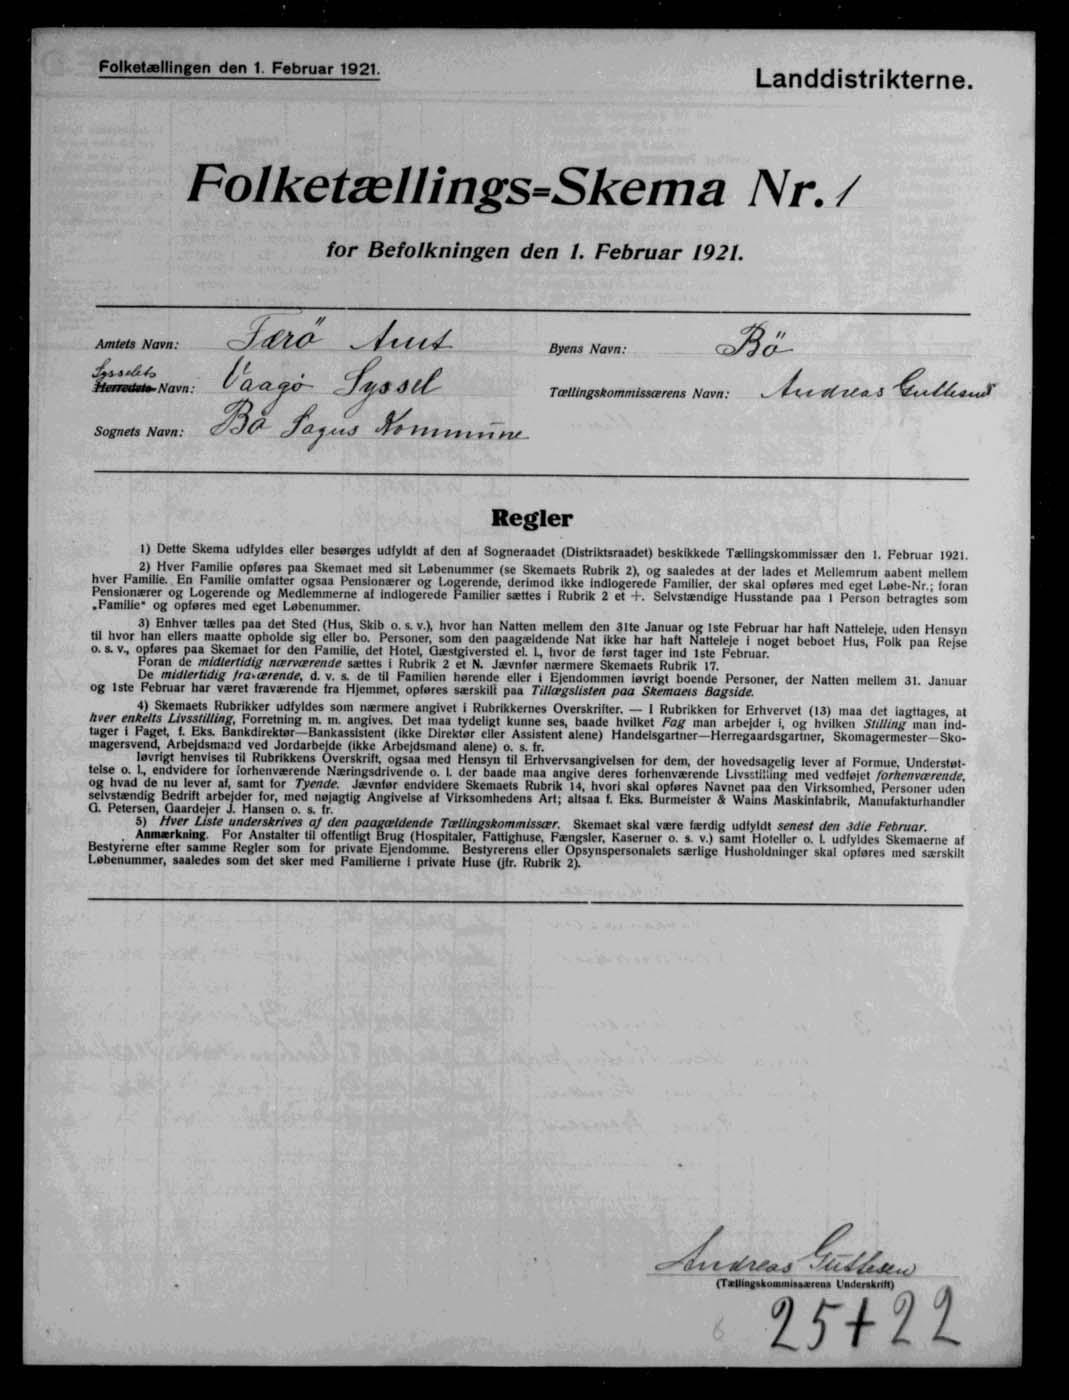 Folketællingen den 1. Februar 1921.
Landdistrikterne.
Folketællings=Skema Nr. 1
for Befolkningen den 1. Februar 1921.
Amtets Navn: Færö Amt
Byens Navn: Bö
Sysselets
Herredets Navn: Vaagö Syssel
Tællingskommissærens Navn: Andreas Guttesen
Sognets Navn: Bö Sogns Kommune
Regler
1) Dette Skema udfyldes eller besørges udfyldt af den af Sogneraadet (Distriktsraadet) beskikkede Tællingskommissær den 1. Februar 1921.
2) Hver Familie opføres paa Skemaet med sit Løbenummer (se Skemaets Rubrik 2), og saaledes at der lades et Mellemrum aabent mellem
hver Familie. En Familie omfatter ogsaa Pensionærer og Logerende, derimod ikke indlogerede Familier, der skal opføres med eget Løbe-Nr.; foran
Pensionærer og Logerende og Medlemmerne af indlogerede Familier sættes i Rubrik 2 et +. Selvstændige Husstande paa 1 Person betragtes som
„Familie“ og opføres med eget Løbenummer.
3) Enhver tælles paa det Sted (Hus, Skib o. s. v.), hvor han Natten mellem den 31te Januar og 1ste Februar har haft Natteleje, uden Hensyn
til hvor han ellers maatte opholde sig eller bo. Personer, som den paagældende Nat ikke har haft Natteleje i noget beboet Hus, Folk paa Rejse
o. s. v., opføres paa Skemaet for den Familie, det Hotel, Gæstgiversted el. l., hvor de først tager ind 1ste Februar.
Foran de midlertidig nærværende sættes i Rubrik 2 et N. Jævnfør nærmere Skemaets Rubrik 17.
De midlertidig fraværende, d. v. s. de til Familien hørende eller i Ejendommen iøvrigt boende Personer, der Natten mellem 31. Januar
og 1ste Februar har været fraværende fra Hjemmet, opføres særskilt paa Tillægslisten paa Skemaets Bagside.
4) Skemaets Rubrikker udfyldes som nærmere angivet i Rubrikkernes Overskrifter. — I Rubrikken for Erhvervet (13) maa det iagttages, at
hver enkelts Livsstilling, Forretning m. m. angives. Det maa tydeligt kunne ses, baade hvilket Fag man arbejder i, og hvilken Stilling man ind-
tager i Faget, f. Eks. Bankdirektør—Bankassistent (ikke Direktør eller Assistent alene) Handelsgartner—Herregaardsgartner, Skomagermester—Sko-
magersvend, Arbejdsmand ved Jordarbejde (ikke Arbejdsmand alene) o. s. fr.
Iøvrigt henvises til Rubrikkens Overskrift, ogsaa med Hensyn til Erhvervsangivelsen for dem, der hovedsagelig lever af Formue, Understøt-
telse o. l., endvidere for forhenværende Næringsdrivende o. l. der baade maa angive deres forhenværende Livsstilling med vedføjet forhenværende,
og hvad de nu lever af, samt for Tyende. Jævnfør endvidere Skemaets Rubrik 14, hvori skal opføres Navnet paa den Virksomhed, Personer uden
selvstændig Bedrift arbejder for, med nøjagtig Angivelse af Virksomhedens Art; altsaa f. Eks. Burmeister & Wains Maskinfabrik, Manufakturhandler
G. Petersen, Gaardejer J. Hansen o. s. fr.
5) Hver Liste underskrives af den paagældende Tællingskommissær. Skemaet skal være færdig udfyldt senest den 3die Februar.
Anmærkning. For Anstalter til offentligt Brug (Hospitaler, Fattighuse, Fængsler, Kaserner o. s. v.) samt Hoteller o. l. udfyldes Skemaerne af
Bestyrerne efter samme Regler som for private Ejendomme. Bestyrerens eller Opsynspersonalets særlige Husholdninger skal opføres med særskilt
Løbenummer, saaledes som det sker med Familierne i private Huse (jfr. Rubrik 2).
Andreas Guttesen
(Tællingskommissærens Underskrift)
25+22